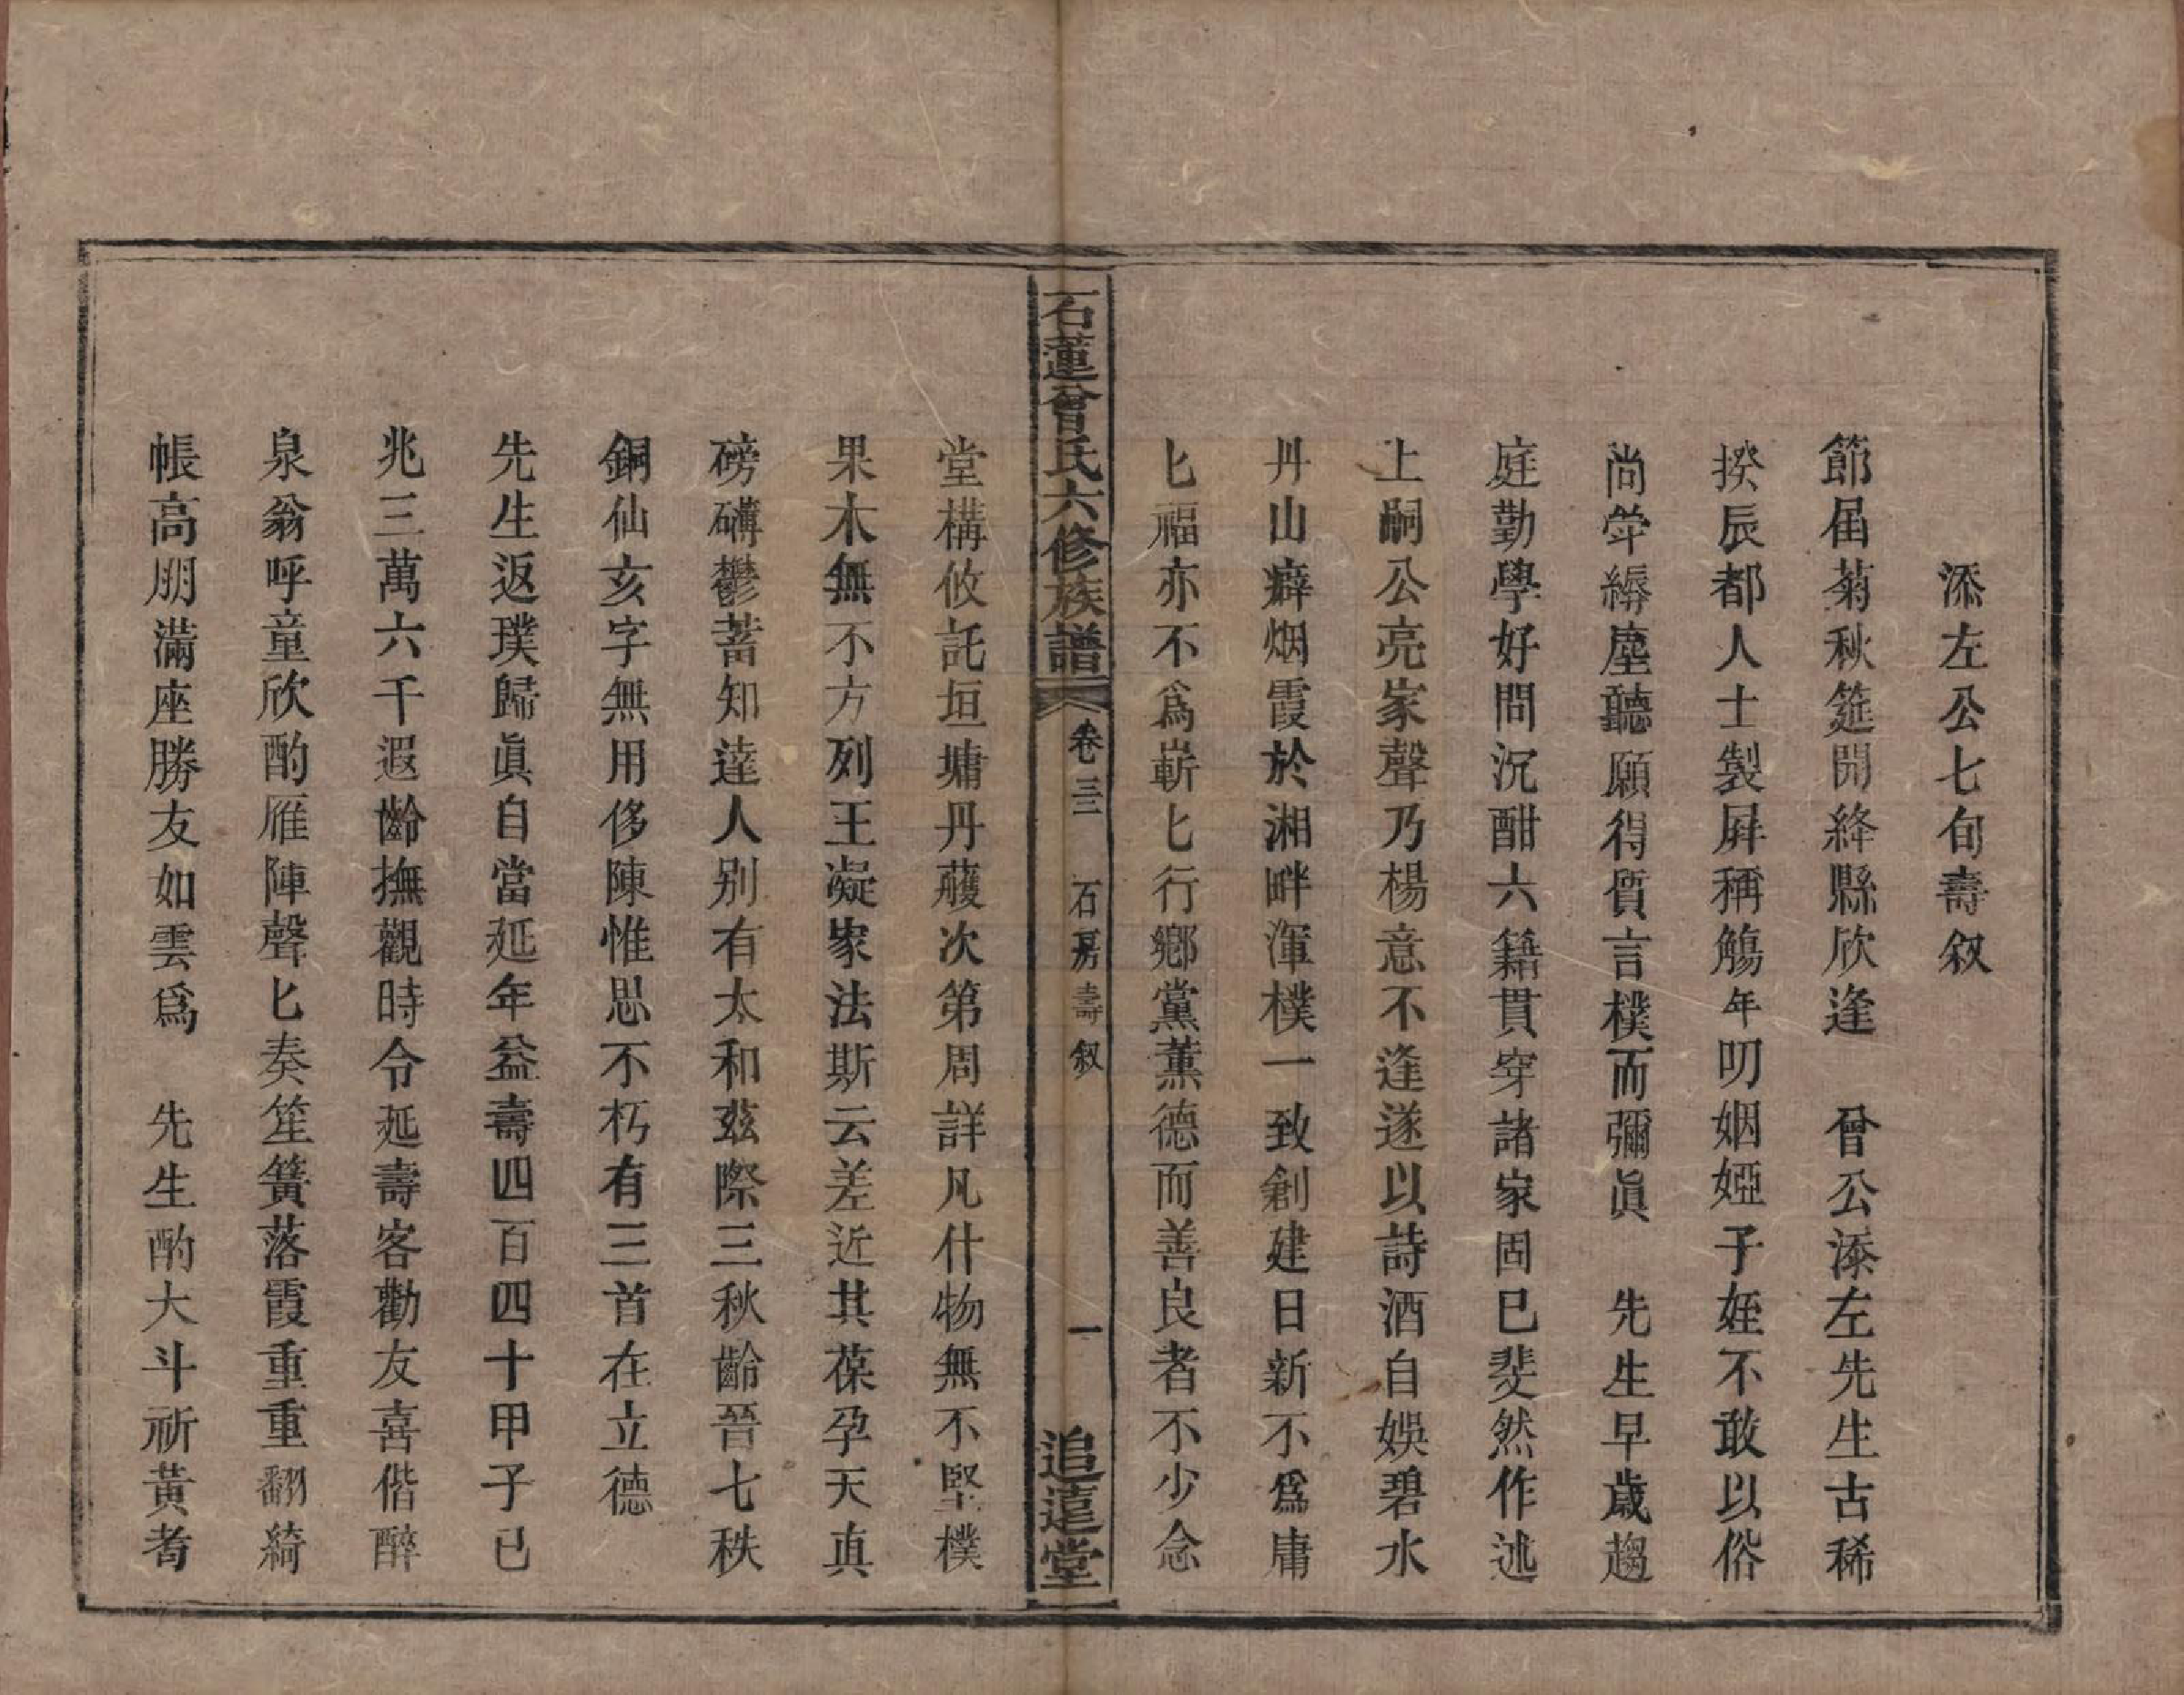 添左公七旬壽叙
節届菊秋筵開絳縣欣逢　曾公添左先生古稀
揆辰都人士製屛稱觴年叨姻婭子姪不敢以俗
尚牮縟塵聽願得質言樸而彌眞　先生早歲趨
庭勤學好問沉酣六籍貫穿諸家固已斐然作述
上嗣公亮家聲乃楊意不逢遂以詩酒自娛碧水
丹山癖烟霞於湘畔渾樸一致創建日新不爲庸
匕福亦不爲嶄匕行鄕黨薰德而善良者不少念
石蓮曾氏六修族譜　卷三三　石房壽叙　一　追遠堂
堂構攸託垣墉丹雘次第周詳凡什物無不堅樸
果木無不方列王凝家法斯云差近其葆孕天真
磅礴鬱蓄知達人别有太和兹際三秋齡晉七秩
銅仙亥字無用侈陳惟思不朽有三首在立德
先生返璞歸眞自當延年益壽四百四十甲子已
兆三萬六千遐齡撫觀時令延壽客勸友喜偕醉
泉翁呼童欣酌雁陣聲匕奏笙簧落霞重重翻綺
帳高朋滿座勝友如雲爲　先生酌大斗祈黃耇